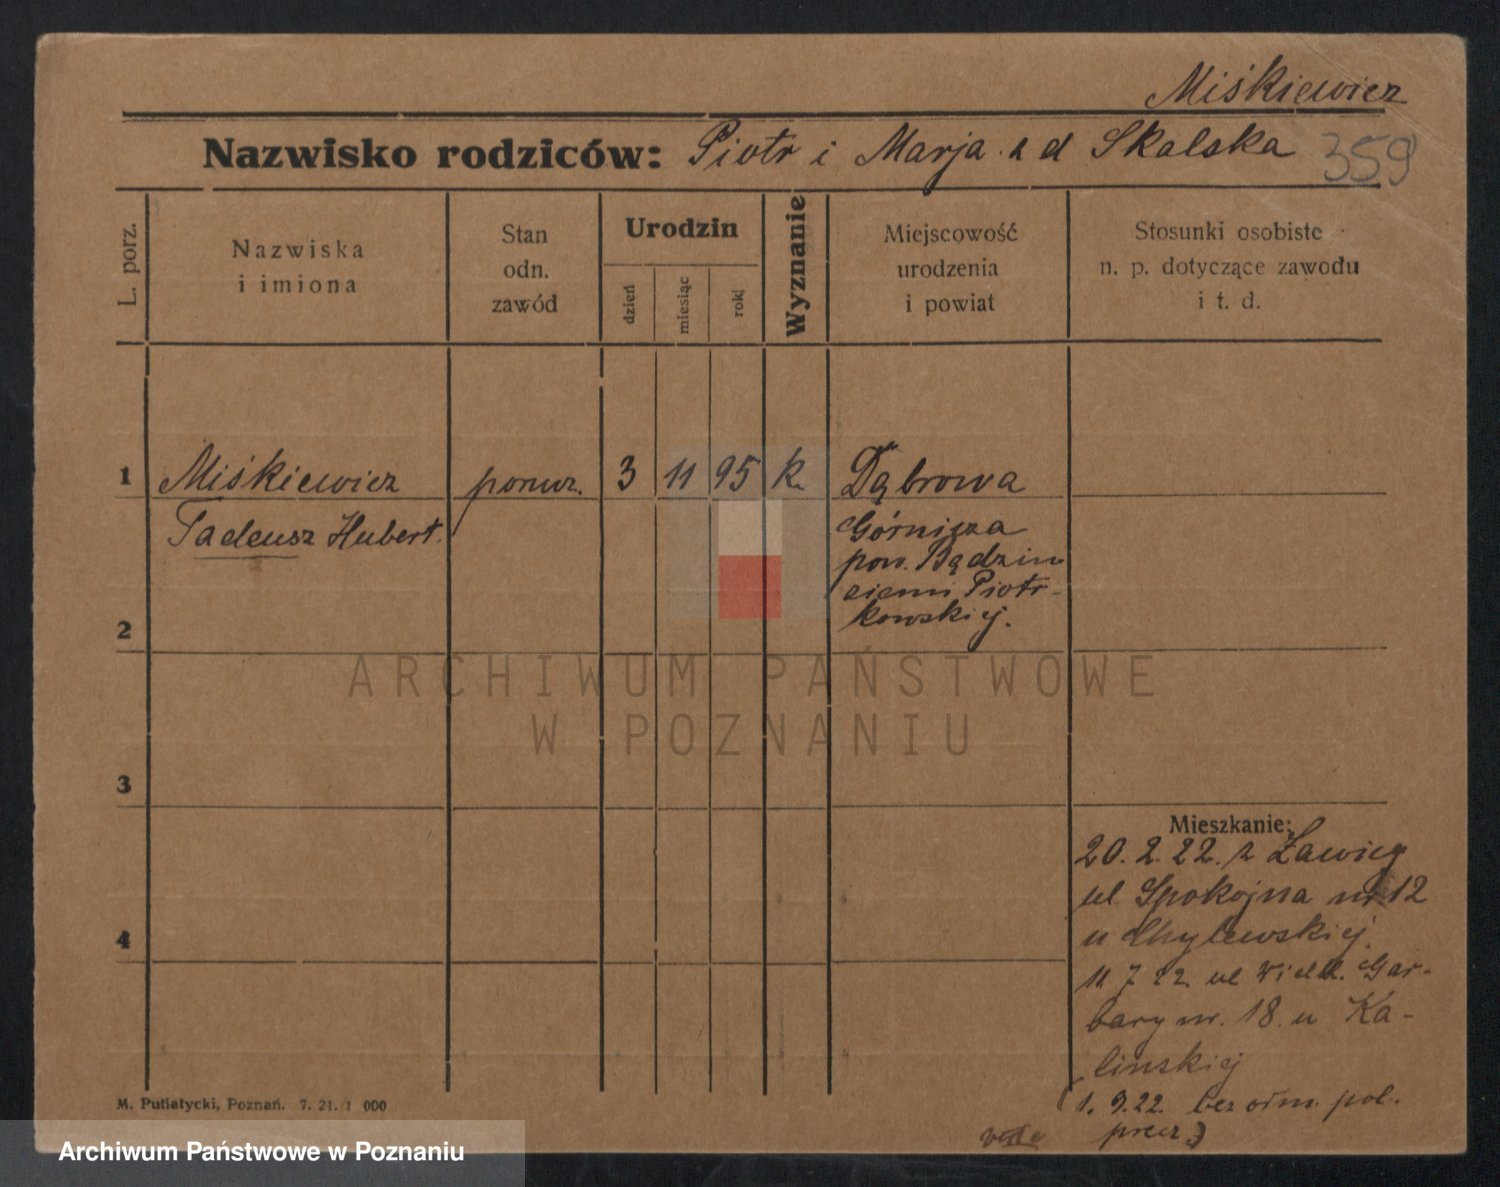 Miśkiewicz
Nazwisko rodziców: Piotr i Marja z d Skalska 359
L. porz.
Nazwiska
i imiona
Stan
odn.
zawód
Urodzin
dzień
miesiąc
rok
Wyznanie
Miejscowość
urodzenia
i powiat
Stosunki osobiste
n. p. dotyczące zawodu
i t. d.
1 Miśkiewicz porucz. 3 11 95 k. Dąbrowa
Tadeusz Hubert.
Górnicza
pow. Bądzin
ziemi Piotr-
kowskiej.
2
3
4
Mieszkanie:
20. 2. 22. z Zawieg
ul. Spokojna nr 12
u Chylewskiej.
11 7 22. ul Wielk. Gar-
bary nr. 18. u Ka-
linskiej
1. 9. 22 bez odm. pol.
prez
M. Putiatycki, Poznań. 7. 21. 1 000
ARCHIWUM PAŃSTWOWE
W POZNANIU
Archiwum Państwowe w Poznaniu